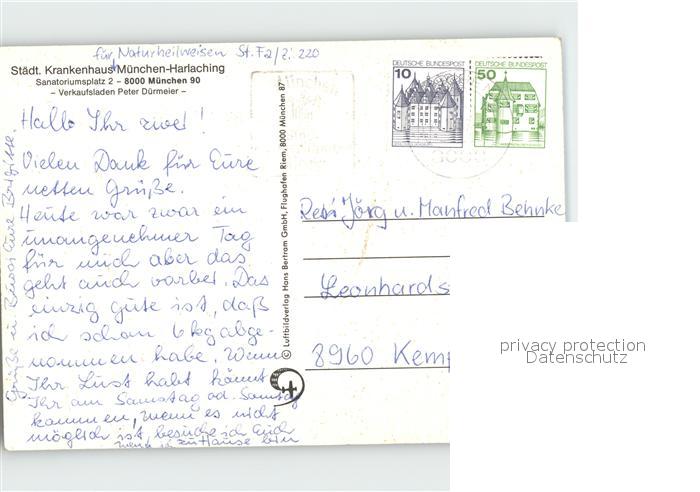 für Naturheilweisen St. F2/Zi. 220
Städt. Krankenhaus München-Harlaching
Sanatoriumsplatz 2 – 8000 München 90
– Verkaufsladen Peter Dürmeier –
Hallo Ihr zwei!
Vielen Dank für Eure
netten Grüße.
Heute war zwar ein
unangenehmer Tag
für mich aber das
geht auch vorbei. Das
einzig gute ist, daß
ich schon 6 kg abge-
nommen habe. Wenn
Ihr Lust habt könnt
Ihr am Samstag od. Sonntag
kommen, wenn es nicht
möglich ist, besuche ich Euch
wenn ich zu Hause bin
Grüße u. Bussi Eure Brigitte
© Luftbildverlag Hans Bertram GmbH, Flughafen Riem, 8000 München 87
10 DEUTSCHE BUNDESPOST
50 DEUTSCHE BUNDESPOST
Jörg u. Manfred Behnke
Leonhards
8960 Kemp
privacy protection
Datenschutz